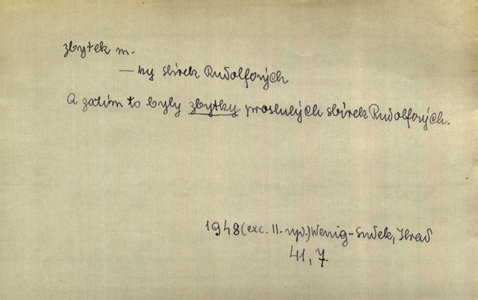 zbytek m.
— ky sbírek Rudolfových
A zatím to byly zbytky proslulých sbírek Rudolfových.
1948 (exc. II. vyd.) Wenig-Sudek, Hrad
41, 7